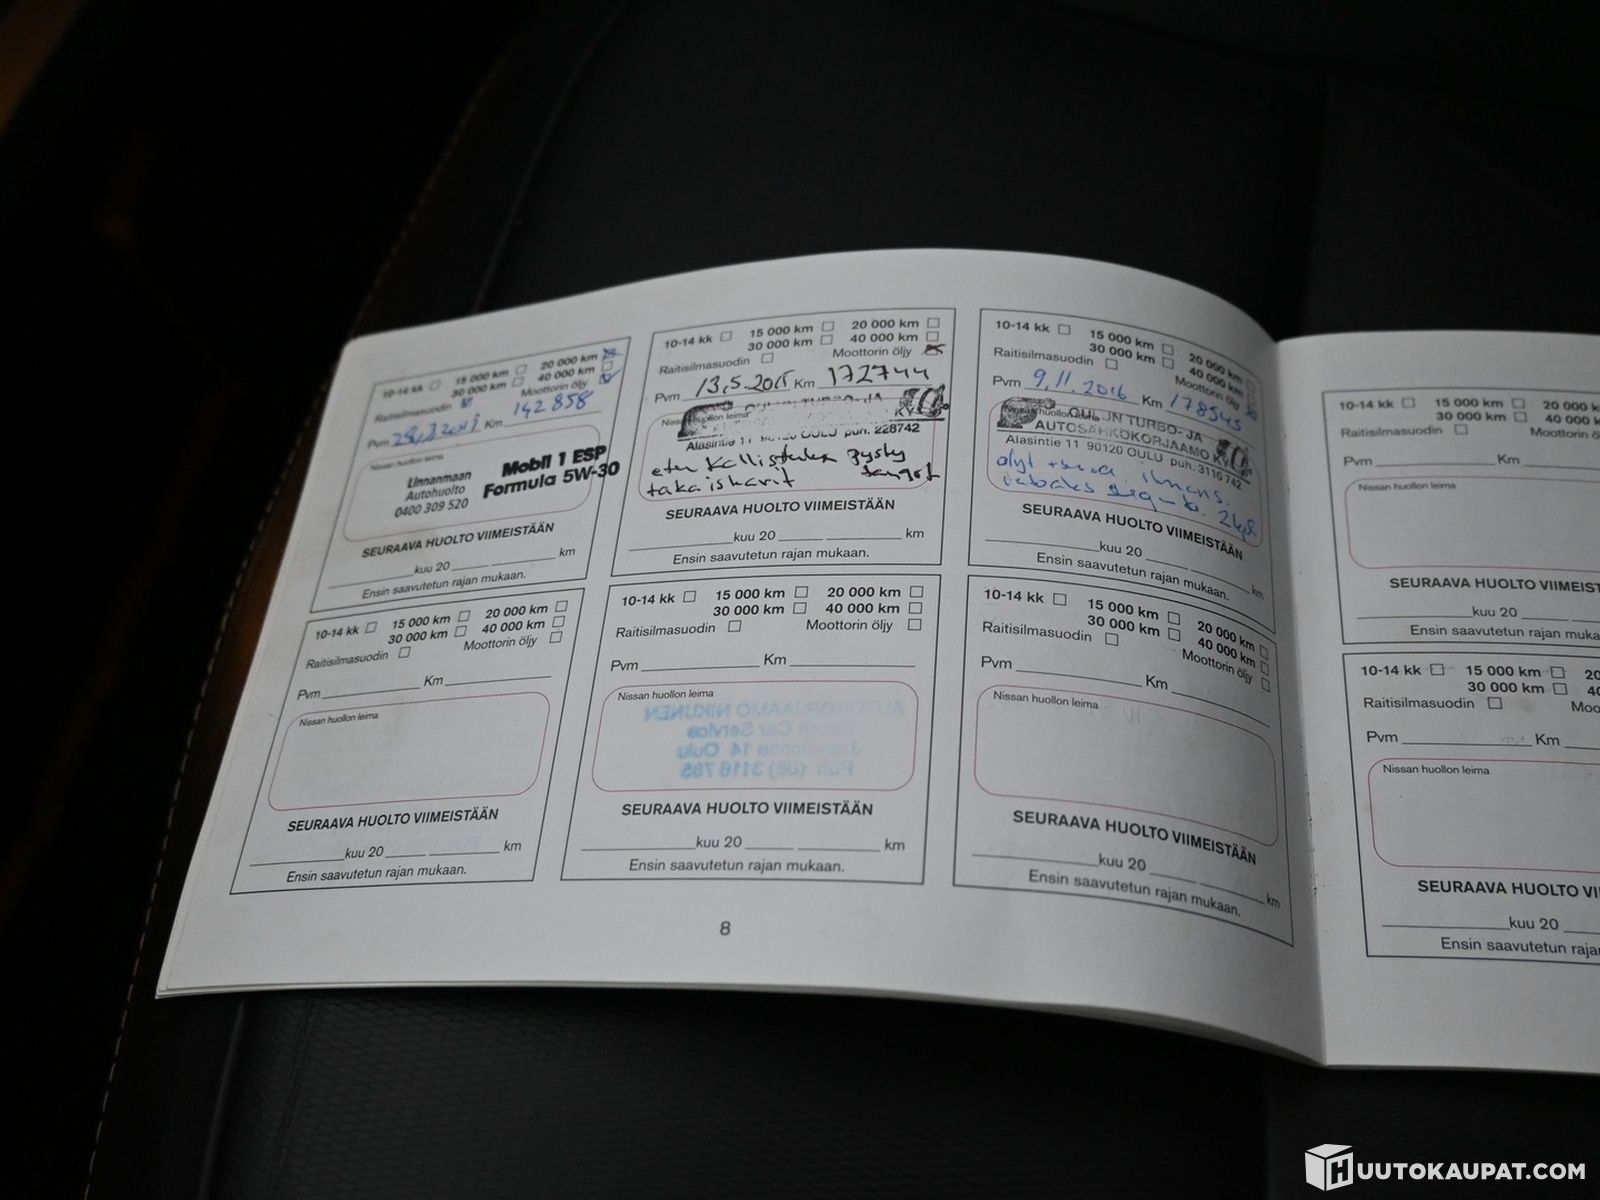 10-14 kk 15 000 km 20 000 km
30 000 km 40 000 km
Raitisilmasuodin Moottorin öljy
Pvm Km 142 858
Nissan huollon leima
Linnanmaan
Autohuolto
0400 309 520
Mobil 1 ESP
Formula 5W-30
SEURAAVA HUOLTO VIIMEISTÄÄN
kuu 20 km
Ensin saavutetun rajan mukaan.
10-14 kk 15 000 km 20 000 km
30 000 km 40 000 km
Raitisilmasuodin Moottorin öljy
Pvm 13.5.2015 Km 172744
OULUN TURBO- JA
KY
Alasintie 11 90120 OULU puh. 228742
etu kallistuksen pysty
takaiskarit tangot
SEURAAVA HUOLTO VIIMEISTÄÄN
kuu 20 km
Ensin saavutetun rajan mukaan.
10-14 kk 15 000 km 20 000 km
30 000 km 40 000 km
Raitisilmasuodin Moottorin öljy
Pvm 9.11.2016 Km 178545
OULUN TURBO- JA
AUTOSÄHKÖKORJAAMO KY
Alasintie 11 90120 OULU puh. 3116 742
öljyt ilmans.
2kpl
SEURAAVA HUOLTO VIIMEISTÄÄN
kuu 20 km
Ensin saavutetun rajan mukaan.
10-14 kk 15 000 km 20 000 km
30 000 km 40 000 km
Raitisilmasuodin Moottorin öljy
Pvm Km
Nissan huollon leima
SEURAAVA HUOLTO VIIMEISTÄÄN
kuu 20 km
Ensin saavutetun rajan mukaan.
10-14 kk 15 000 km 20 000 km
30 000 km 40 000 km
Raitisilmasuodin Moottorin öljy
Pvm Km
Nissan huollon leima
AUTOKORJAAMO NIKUNEN
Car Service
14 Oulu
Puh. (08) 3116 765
SEURAAVA HUOLTO VIIMEISTÄÄN
kuu 20 km
Ensin saavutetun rajan mukaan.
10-14 kk 15 000 km 20 000 km
30 000 km 40 000 km
Raitisilmasuodin Moottorin öljy
Pvm Km
Nissan huollon leima
SEURAAVA HUOLTO VIIMEISTÄÄN
kuu 20 km
Ensin saavutetun rajan mukaan.
8
10-14 kk 15 000 km 20 0
30 000 km 40 0
Raitisilmasuodin Moottorin ö
Pvm Km
Nissan huollon leima
SEURAAVA HUOLTO VIIMEIS
kuu 20
Ensin saavutetun rajan muka
10-14 kk 15 000 km 20
30 000 km 40
Raitisilmasuodin Moo
Pvm Km
Nissan huollon leima
SEURAAVA HUOLTO VI
kuu 20
Ensin saavutetun raja
HUUTOKAUPAT.COM